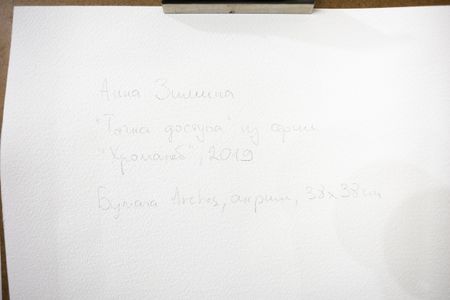 Анна Зимина
"Точка доступа" из серии
"Хромалаб", 2019
Бумага Arches, акрил, 38x38 см